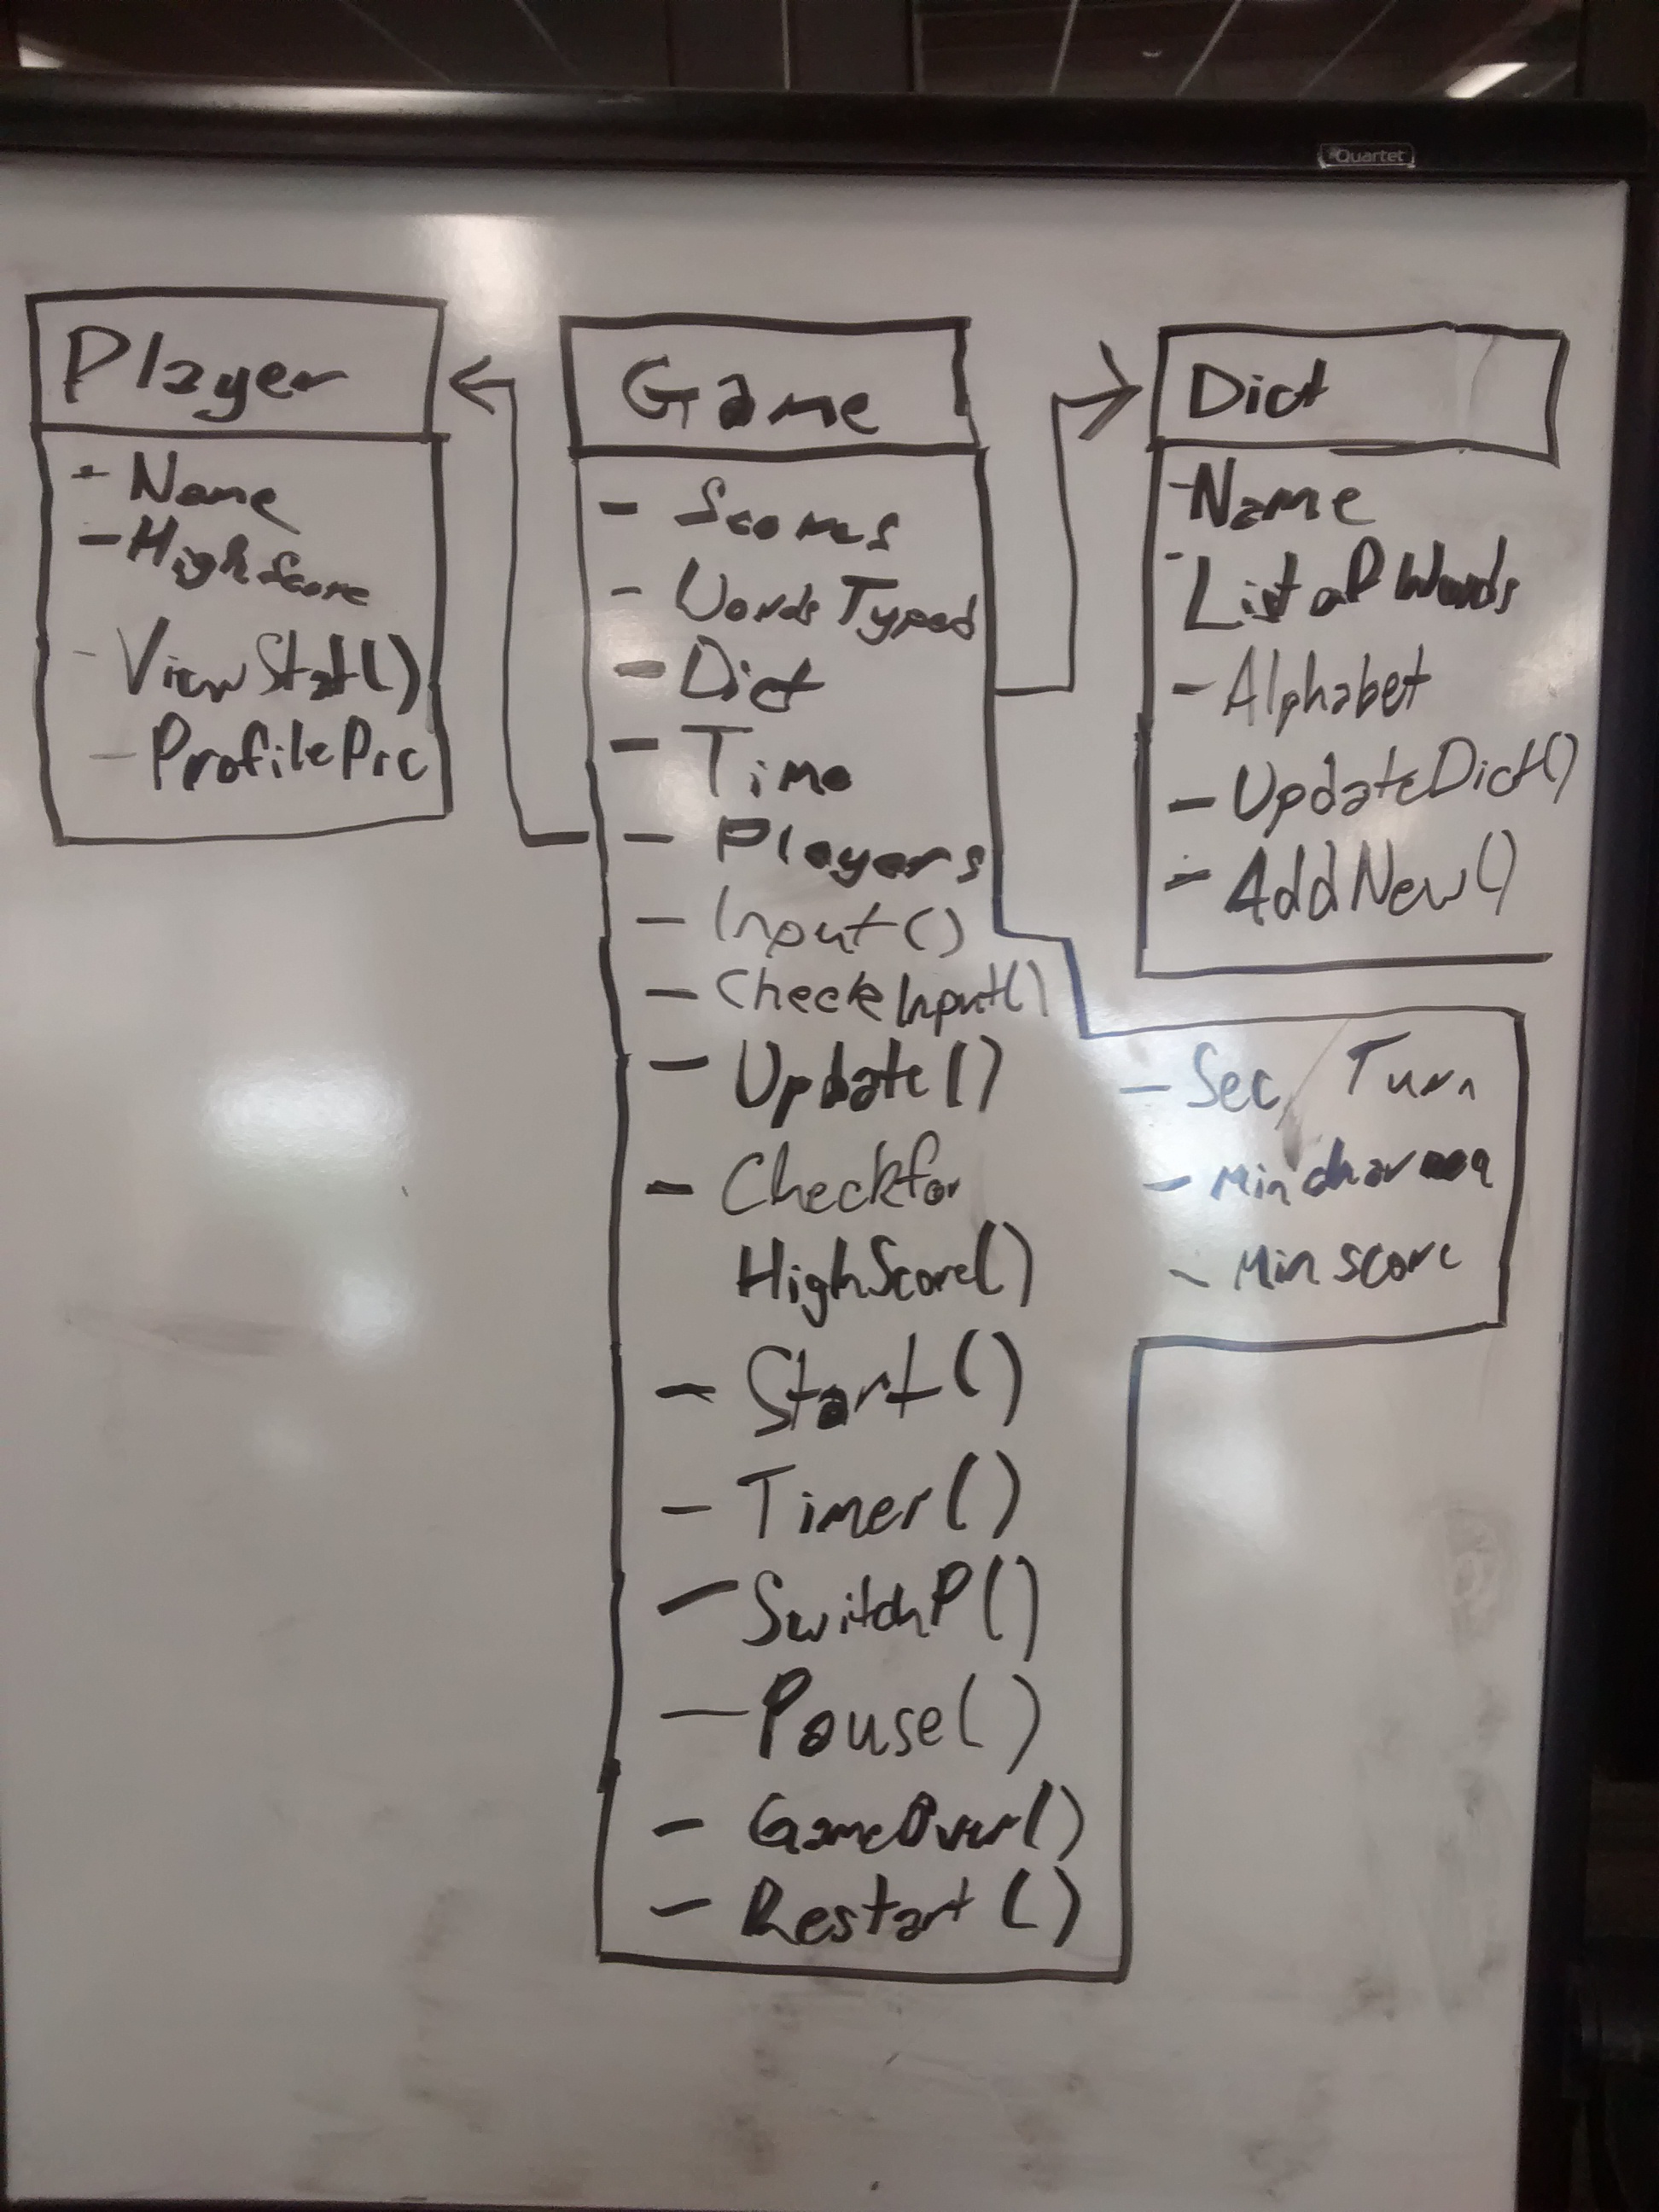 Quartet
Player
- Name
- HighScore
- ViewStat()
- ProfilePic
Game
- Scores
- WordsTyped
- Dict
- Time
- Players
- Input()
- CheckInput()
- Update()
- Checkfor
HighScore()
- Start()
- Timer()
- SwitchP()
- Pause()
- GameOver()
- Restart()
- Sec/Turn
- Minchar
- Minscore
Dict
- Name
- ListofWords
- Alphabet
- UpdateDict()
- AddNew()